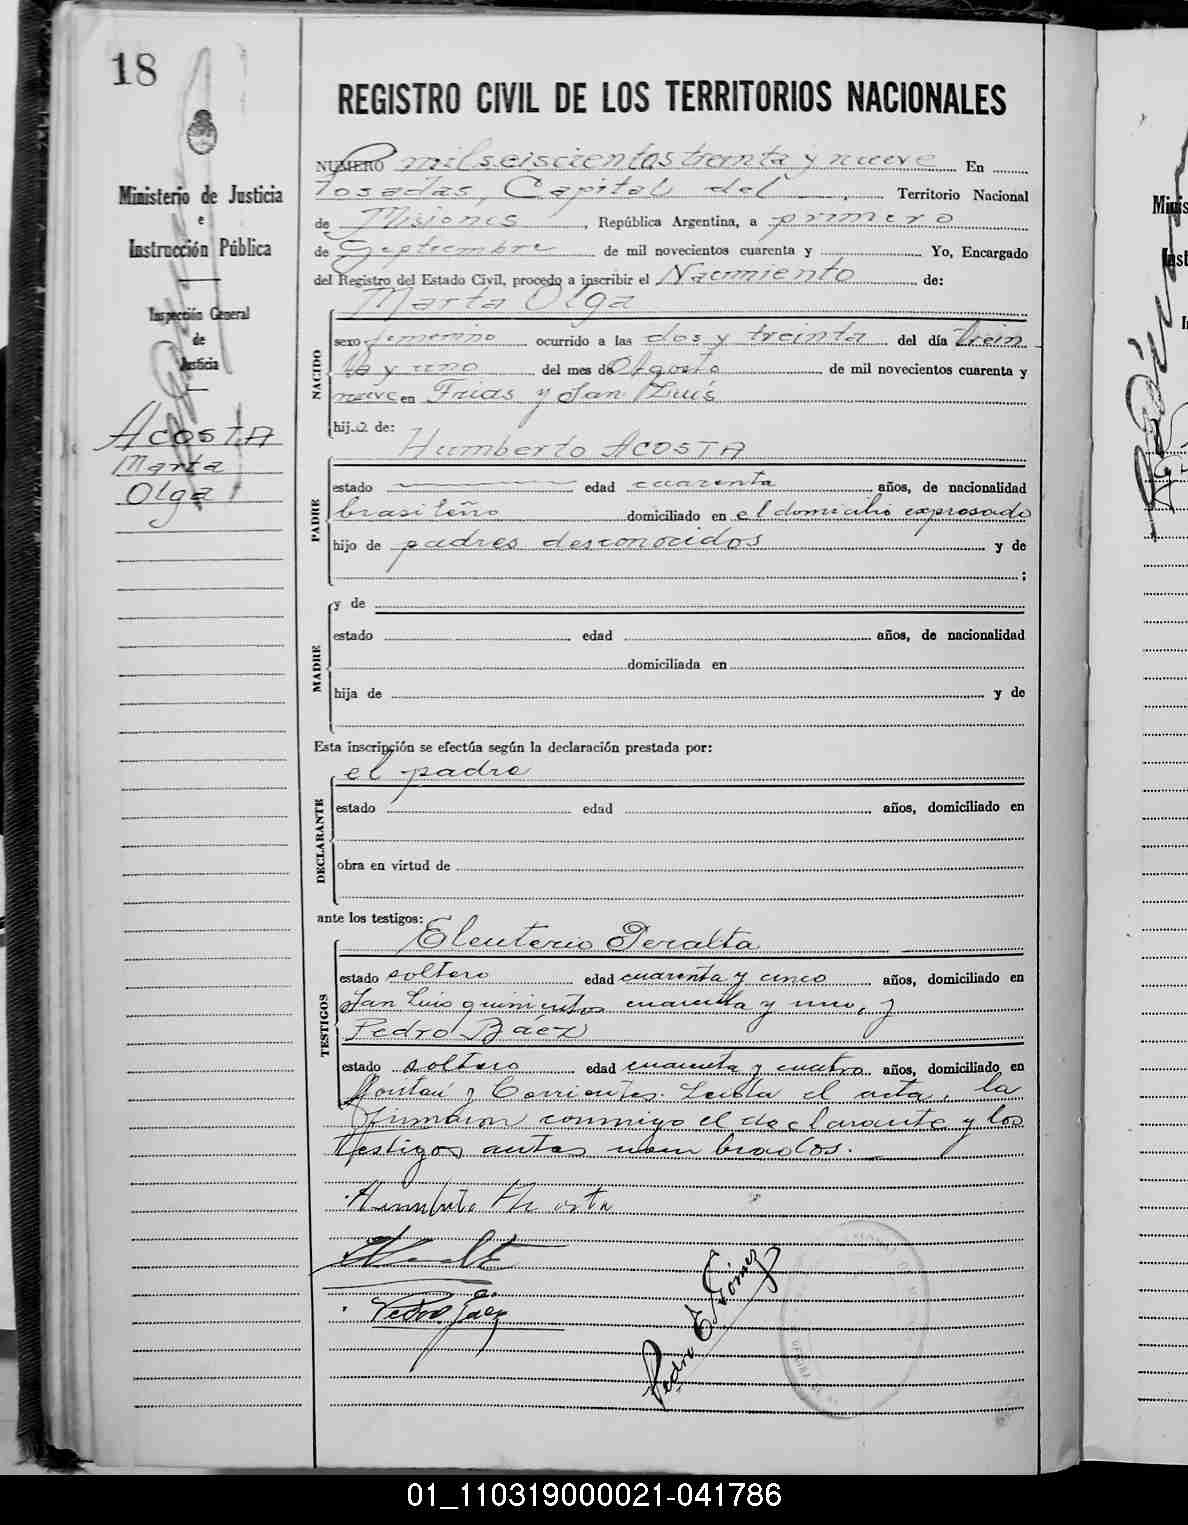 18
REGISTRO CIVIL DE LOS TERRITORIOS NACIONALES
Ministerio de Justicia
e
Instrucción Pública
Inspección General
de
Justicia
ACOSTA
Marta
Olga
NUMERO milseiscientos treinta y nueve En
Posadas, Capital del Territorio Nacional
de Misiones, República Argentina, a primero
de Septiembre de mil novecientos cuarenta y Yo, Encargado
del Registro del Estado Civil, procedo a inscribir el Nacimiento de:
Marta Olga
NACIDO
sexo femenino ocurrido a las dos y treinta del día trein
ta y uno del mes de Agosto de mil novecientos cuarenta y
nueve en Frias y San Luís
hij.a de:
Humberto ACOSTA
PADRE
estado edad cuarenta años, de nacionalidad
brasileño domiciliado en el domicilio expresado
hijo de padres desconocidos y de
;
MADRE
y de
estado edad años, de nacionalidad
domiciliada en
hija de y de
Esta inscripción se efectúa según la declaración prestada por:
el padre
DECLARANTE
estado edad años, domiciliado en
obra en virtud de
ante los testigos:
Eleuterio Peralta
TESTIGOS
estado soltero edad cuarenta y cinco años, domiciliado en
San Luis quinientos cuarenta y uno, y
Pedro Báez
estado soltero edad cuarenta y cuatro años, domiciliado en
y Corrientes. Leída el acta, la
firmaron conmigo el declarante y los
testigos antes nombrados.
Humberto Acosta
Pedro Báez
Pedro E. Gómez
01_110319000021-041786